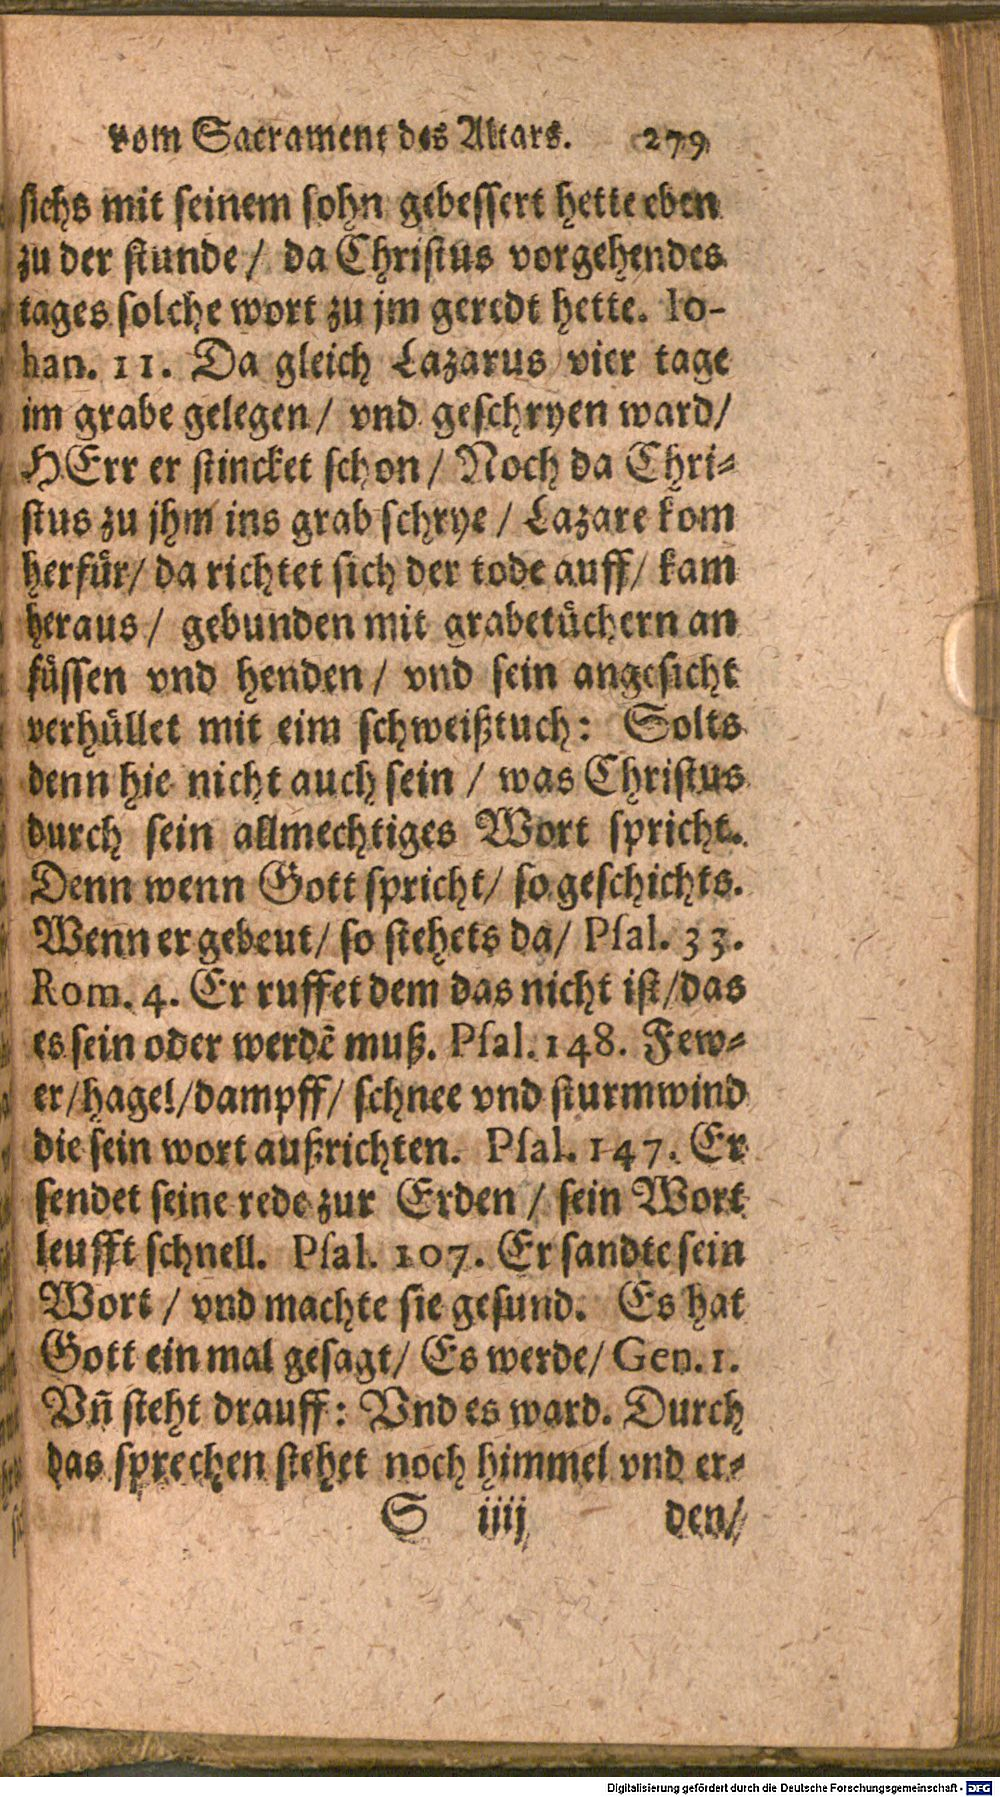 vom Sacrament des Altars. 279
sichs mit seinem sohn gebessert hette eben
zu der stunde / da Christus vorgehendes
tages solche wort zu jm geredt hette. Io-
han. 11. Da gleich Lazarus vier tage
im grabe gelegen / vnd geschryen ward /
HErr er stincket schon / Noch da Chri-
stus zu jhm ins grab schrye / Lazare kom
herfuͤr / da richtet sich der tode auff / kam
heraus / gebunden mit grabetuͤchern an
fuͤssen vnd henden / vnd sein angesicht
verhuͤllet mit eim schweißtuch: Solts
denn hie nicht auch sein / was Christus
durch sein allmechtiges Wort spricht.
Denn wenn Gott spricht / so geschichts.
Wenn er gebeut / so stehets da / Psal. 33.
Rom. 4. Er ruffet dem das nicht ist / das
es sein oder werdē muß. Psal. 148. Few-
er / hagel / dampff / schnee vnd sturmwind
die sein wort außrichten. Psal. 147. Er
sendet seine rede zur Erden / sein Wort
leufft schnell. Psal. 107. Er sandte sein
Wort / vnd machte sie gesund. Es hat
Gott ein mal gesagt / Es werde / Gen. 1.
Vn̄ steht drauff: Vnd es ward. Durch
das sprechen stehet noch himmel vnd er-
S iiij den /
Digitalisierung gefördert durch die Deutsche Forschungsgemeinschaft - DFG